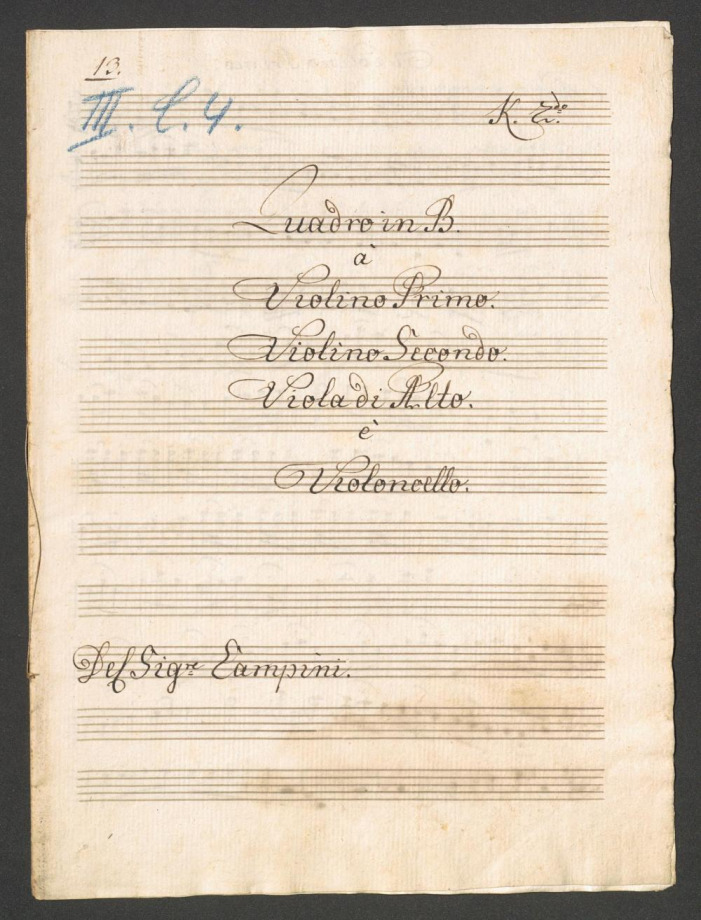 13.
III. C. 4.
K. 2do.
Quadro in B.
à
Violino Primo.
Violino Secondo.
Viola di Alto.
è
Violoncello.
Del Sigre Campini.